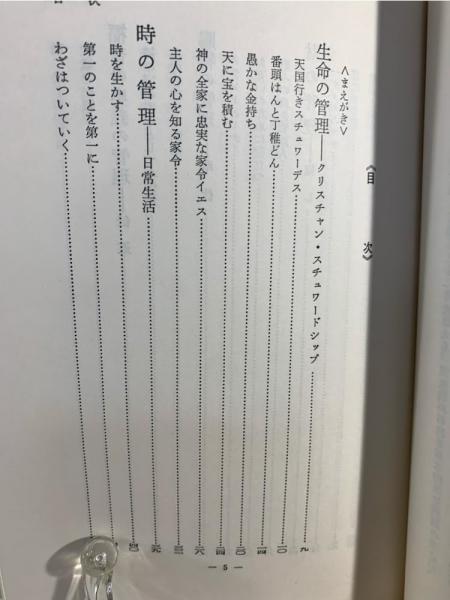 《目次》
<まえがき>
生命の管理――クリスチャン・スチュワードシップ………九
天国行きスチュワーデス………一〇
番頭はんと丁稚どん………一四
愚かな金持ち………二〇
天に宝を積む………二四
神の全家に忠実な家令イエス………二六
主人の心を知る家令………
時の管理――日常生活………三九
時を生かす………四〇
第一のことを第一に………
わざはついていく………
― 5 ―